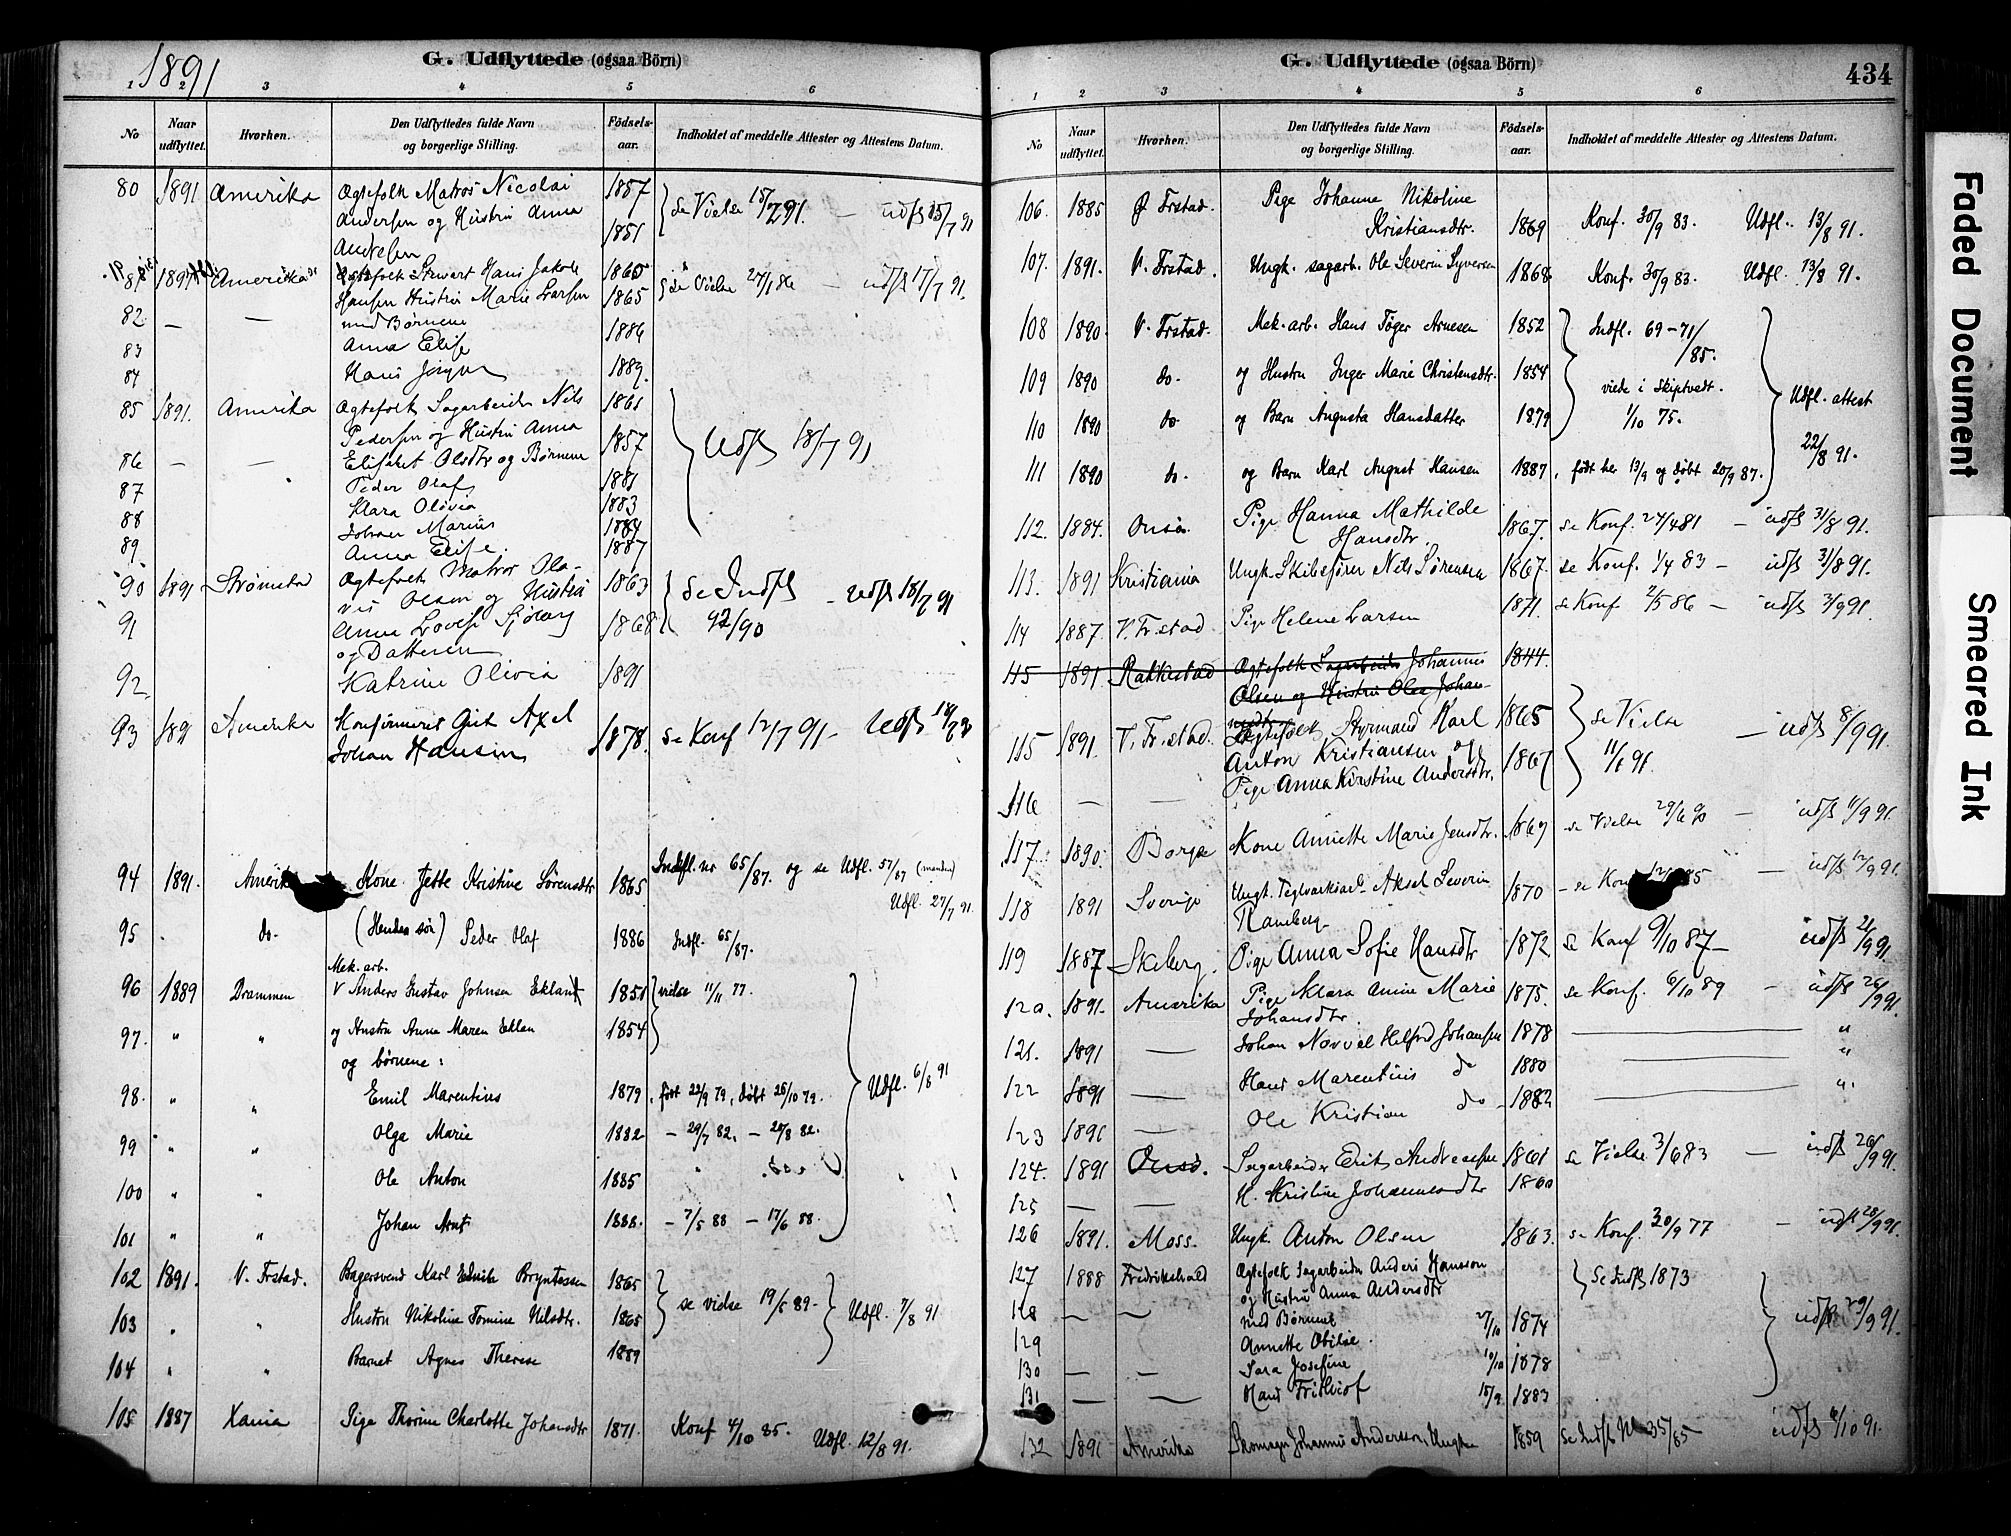 1891
G. Udflyttede (ogsaa Börn)
1 2 3 4 5 6
No
Naar udflyttet.
Hvorhen.
Den Udflyttedes fulde Navn og borgerlige Stilling.
Födsels-aar.
Indholdet af meddelte Attester og Attestens Datum.
80 1891 Amerika Ægtefolk Matros Nicolai 1857 se Vielse 15/7 91. — udfl 15/7 91
Andersen og Hustru Anna 1851
Andersen
1891 Amerika Ægtefolk Hans Jakob 1865 se Vielse 27/1 86 — udfl 17/7 91.
82 — — Hansen Hustru Marie Larsen 1865
med Børnene
83 Anna Elise 1886
84 Hans 1889.
85 1891. Amerika Ægtefolk Sagarbeider Nils 1861 Udfl 18/7 91
Pedersen og Hustru Anna 1857
86 — — Elisabet Olsdtr og Børnene
87 Peder Olaf 1881
88 Klara Olivia 1883
89 Johan Marius 1884
Anna Elise. 1887
90 1891 Strømstad Ægtefolk Matros Ola- 1863 se Indfl — udfl 18/7 91
vis Olsen og Hustru
91 Anna 1868 92/90
og Datteren
92 Katrine Olivia 1891
93 1891 Amerika Konfirmeret Gut Axel
Johan Hansen 1878. se Konf 12/7 91 — Udfl
94 1891. Amerika Kone Jette Kristine Sørensdtr 1865 Indfl. nr 65/87. og se Udfl. 57/87 (manden)
Udfl. 27/7 91.
95 . do. (Hendes søn) Peder Olaf 1886 Indfl. 65/87.
Mek. arb.
96 1889 Drammen Anders Gustav Johnsen Eklan 1851 vielse 11/11 77.
97. " " og Hustru Anna Maren Eklan 1854
og børnene:
98. " " Emil Marentius 1879. født 22/9 79, døbt 26/10 79. Udfl. 6/8 91
99 " " Olga Marie 1882 — 29/7 82. — 20/8 82.
100 " " Ole Anton 1885
101 " " Johan Arnt 1888. — 7/5 88 — 17/6 88.
102 1891. V. Frstad. Bagersvend Karl Edvin Bryntesen 1865 se vielse 19/5 89. Udfl. 7/8 91
103 . " Hustru Nikoline Tomine Nilsdtr. 1865
104 " " Barnet Agnes Therese 1889
105 1887 Xania Pige Thorine Charlotte Johansdtr 1871. Konf 4/10 85. Udfl. 12/8 91.
G. Udflyttede (ogsaa Börn)
434
1 2 3 4 5 6
No
Naar udflyttet.
Hvorhen.
Den Udflyttedes fulde Navn og borgerlige Stilling.
Födsels-aar.
Indholdet af meddelte Attester og Attestens Datum.
106. 1885 Ø Frstad. Pige Johanne Nikoline
Kristiansdtr. 1869 Konf. 30/9 83. Udfl. 13/8 91.
107. 1891. V. Frstad. Ungk. sagarb. Ole Severin Syversen 1868 Konf. 30/9 83. Udfl. 13/8 91.
108 1890. V. Frstad. Mek. arb. Hans Tøger Arnesen 1852 Indfl. 69-71/85.
109 1890 do. og Hustru Inger Marie Christensdtr. 1854 viede i Skiptvedt. Udfl. attest
110 1890 do og Barn Augusta Hansdatter 1879 1/10 75. 22/8 91.
111 1890 do. og Barn Karl August Hansen 1887. født her 13/9 og døbt 20/9 87.
112. 1884. Onsø. Pige Hanna Mathilde
Hansdtr. 1867. se Konf. 24/4 81 — udfl 31/8 91.
113. 1891 Kristiania Ungk. Skibsfører Nils Sørensen 1867. se Konf. 1/4 83 — udfl 31/8 91.
114 1887. V. Fr.stad Pige Helene Larsen 1871. se Konf 2/5 86 — udfl 3/9 91.
115 1891 Rakkestad Ægtefolk Sagarbeider Johannes 1844.
Olsen og Hustru Olea Johan-
nesdtr
115 1891. V. Fr.stad. Ægtefolk Styrmand Karl 1865 se Vielse — udfl 8/9 91.
Anton Kristiansen og 1867 11/1 91.
116 — — Pige Anna Kirstine Andersdtr.
117. 1890. Borge Kone Annette Marie Jensdtr. 1867 se Vielse 29/6 90 — udfl 11/9 91.
118 1891 Sverige Ungk. Teglverksarb. Aksel Severin 1870 — se Konf — udfl 12/9 91.
Ramberg
119 1887 Skeberg. Pige Anna Sofie Hansdtr 1872 se Konf 9/10 87 — udfl 21/9 91.
120. 1891. Amerika Pige Klara Amine Marie 1875. se Konf. 6/10 89 — udfl 26/9 91.
Johansdtr.
121. 1891 — Johan Helfred Johansen 1878 — "
122 1891 — Hans Marentius do 1880 — "
123 1891 — Ole Kristian do 1882 — "
124. 1891 Onsø. Sagarbeider Erik Andreassen 1861 se Vielse 3/6 83 — udfl 26/9 91.
125 — — H. Kristine Johannesdtr 1860
126 1891. Moss. Ungk. Anton Olsen 1863. se Konf. 30/9 77 — udfl 28/9 91.
127 1888 Fredrikshald Ægtefolk Sagarbeider Anders Hansson se Indfl 1873
128 — — og Hustru Anna Andersdtr
med Børnene udfl 29/9 91.
129 Annette Otilie. 27/10 1874
130 — — Sara Josefine 10/10 1878
131 — — Hans Frithiof 15/9 1883
132 1891 Amerika Skomager Johannes Andersson, Ungk 1859 se Indfl No 35/85 udfl 6/10 91.
Faded Document
Smeared Ink